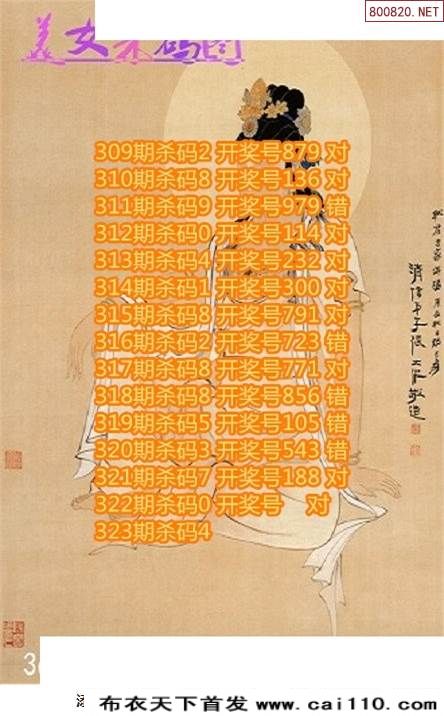 800820.NET
美女杀码图
309期杀码2 开奖号879 对
310期杀码8 开奖号136 对
311期杀码9 开奖号979 错
312期杀码0 开奖号114 对
313期杀码4 开奖号232 对
314期杀码1 开奖号300 对
315期杀码8 开奖号791 对
316期杀码2 开奖号723 错
317期杀码8 开奖号771 对
318期杀码8 开奖号856 错
319期杀码5 开奖号105 错
320期杀码3 开奖号543 错
321期杀码7 开奖号188 对
322期杀码0 开奖号 对
323期杀码4
布衣天下首发 www.cai110.com